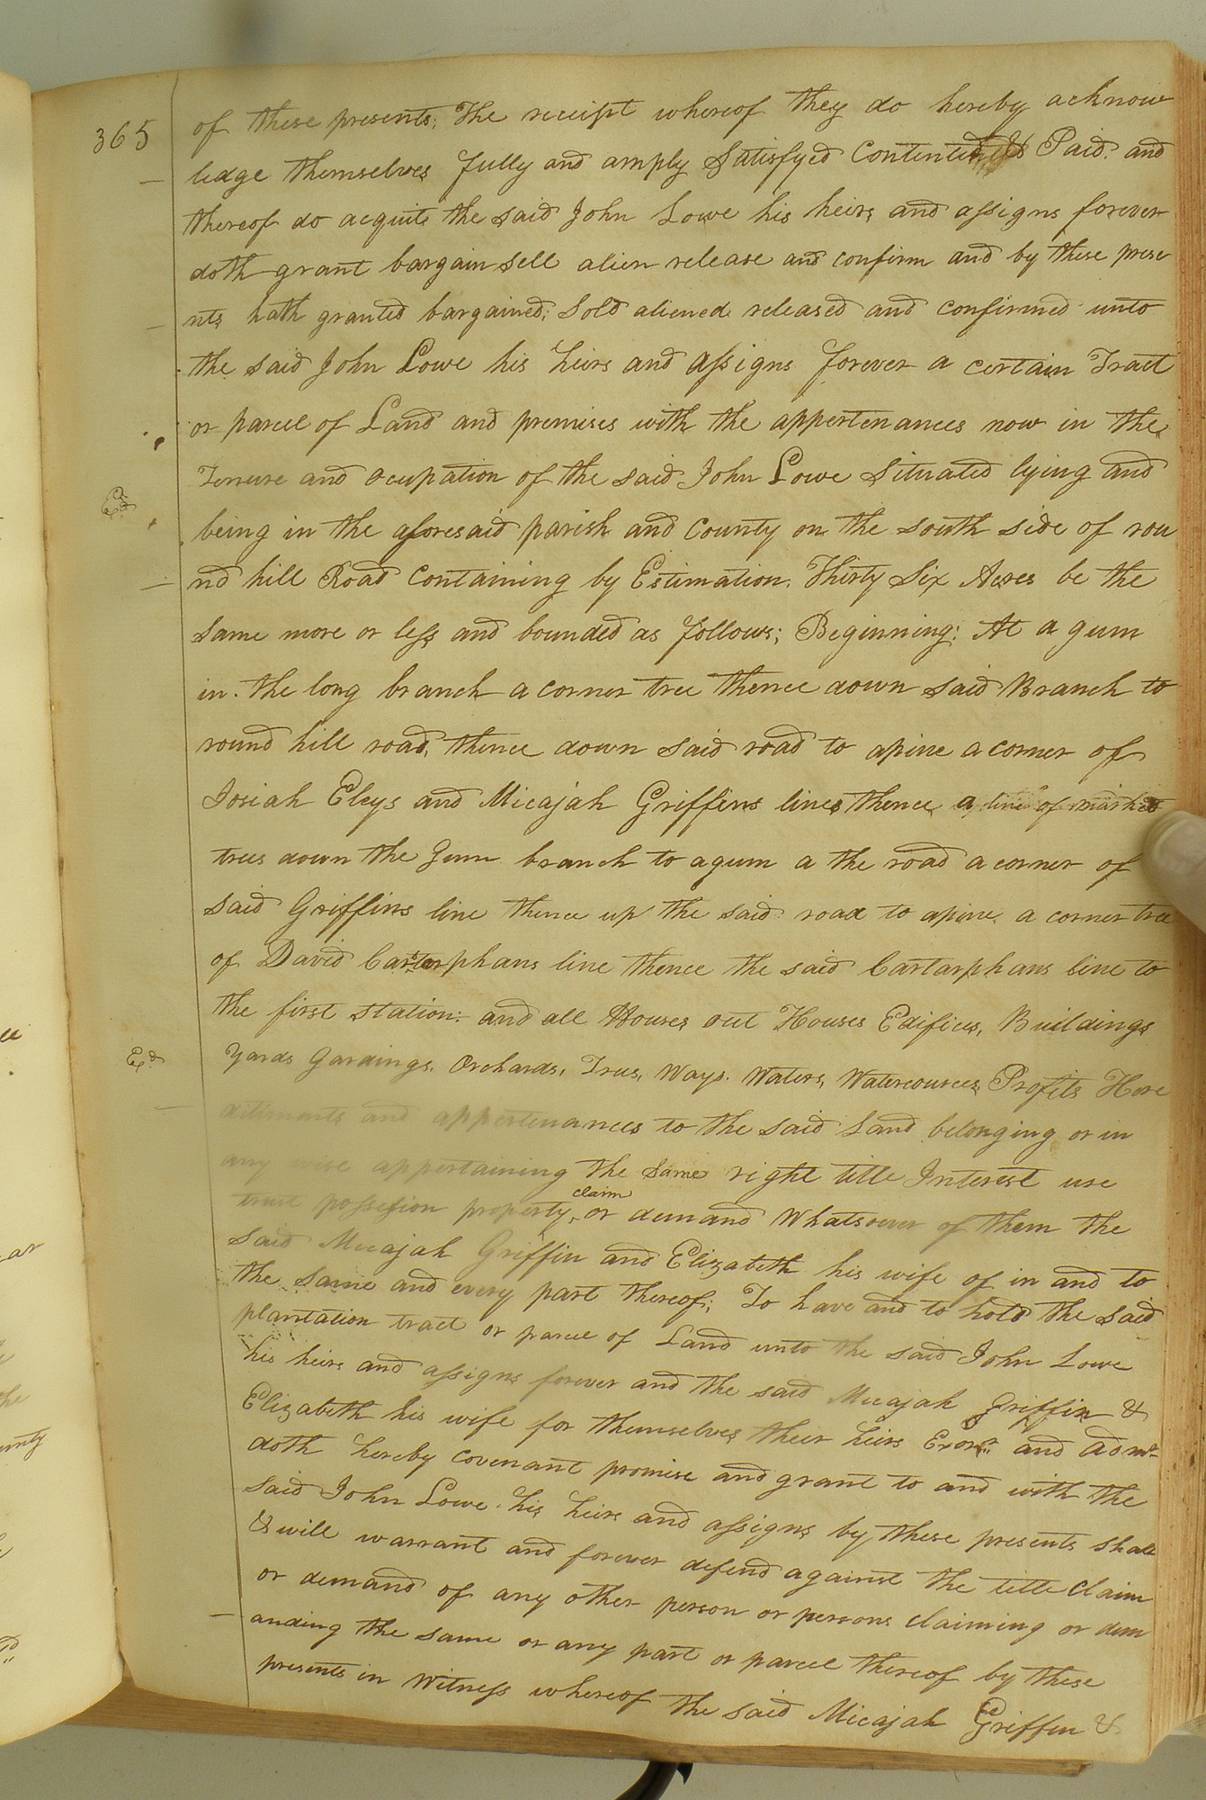 365
of these presents; The receipt whereof they do hereby acknow
ledge themselves fully and amply Satisfyed Contented & Paid. and
thereof do acquit the said John Lowe his heirs and assigns forever
doth grant bargain sell alien release and confirm and by these prese
nts hath granted bargained; Sold aliened released and confirmed unto
the said John Lowe his heirs and assigns forever a certain Tract
or parcel of Land and premises with the appertenances now in the
Tenure and Ocupation of the said John Lowe Situated lying and
Exd
being in the aforesaid parish and County on the south side of rou
nd hill Road Containing by Estimation. Thirty Six Acres be the
Same more or less and bounded as follows; Beginning; At a gum
in the long branch a corner tree thence down said Branch to
round hill road, thence down said road to apine a corner of
Josiah Eleys and Micajah Griffins lines thence a line of marked
trees down the Juner branch to agum a the road a corner of
said Griffins line thence up the said road to apine a corner tree
of David Carterphans line thence the said Cartarphans line to
the first Station: and all Houses out Houses Edifices, Buildings
Exd
Yards Gardings. Orchards, Trees, Ways. Waters, Watercources, Profits Here
ditiments and appertenances to the said Land belonging or in
any wise appertaining the Same right title Interest use
trust possesion property, claim or demand Whatsoever of them the
said Micajah Griffin and Elizabeth his wife of in and to
the same and every part thereof; To have and to hold the said
plantation tract or parcel of Land unto the said John Lowe
his heirs and assigns forever and the said Micajah Griffin &
Elizabeth his wife for themselves their heirs Exors. and Admr
doth hereby covenant promise and grant to and with the
said John Lowe his heirs and assigns by these presents shall
& will warrant and forever defend against the title Claim
or demand of any other person or persons claiming or dem
anding the same or any part or parcel thereof by these
presents in Witness whereof the said Micajah Griffin &